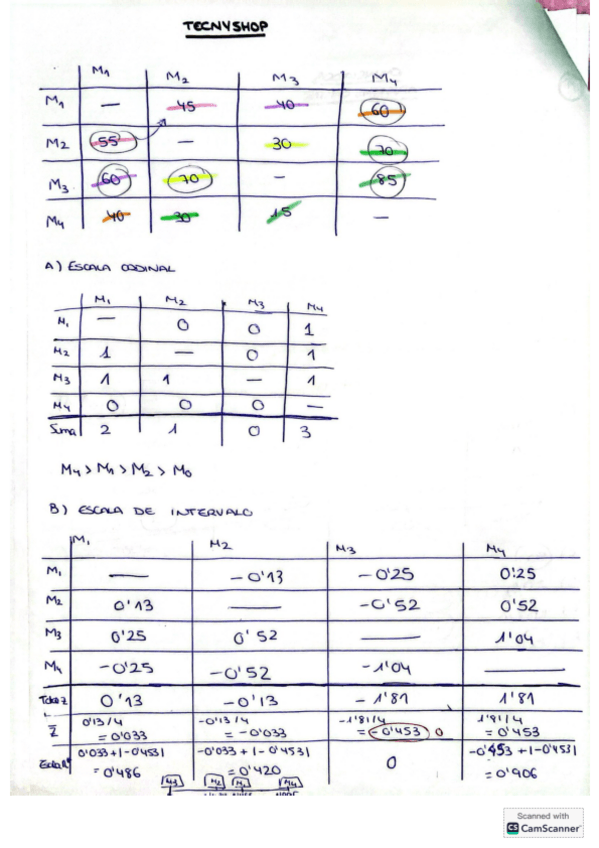 TECNYSHOP
M1 M2 M3 M4
M1 — 45 40 60
M2 55 — 30 70
M3 60 70 — 85
M4 40 30 15 —
A) ESCALA ORDINAL
M1 M2 M3 M4
M1 — 0 0 1
M2 1 — 0 1
M3 1 1 — 1
M4 0 0 0 —
Suma 2 1 0 3
M4 > M1 > M2 > M0
B) ESCALA DE INTERVALO
M1 M2 M3 M4
M1 — -0'13 -0'25 0'25
M2 0'13 — -0'52 0'52
M3 0'25 0'52 — 1'04
M4 -0'25 -0'52 -1'04 —
Total Z 0'13 -0'13 -1'81 1'81
Z̄ 0'13/4 -0'13/4 -1'81/4 1'81/4
= 0'033 = -0'033 = -0'453 0 = 0'453
0'033+|-0'453| -0'033+|-0'453| 0 -0'453+|-0'453|
= 0'486 = 0'420 = 0'906
M3 M2 M1 M4
Scanned with
CS CamScanner